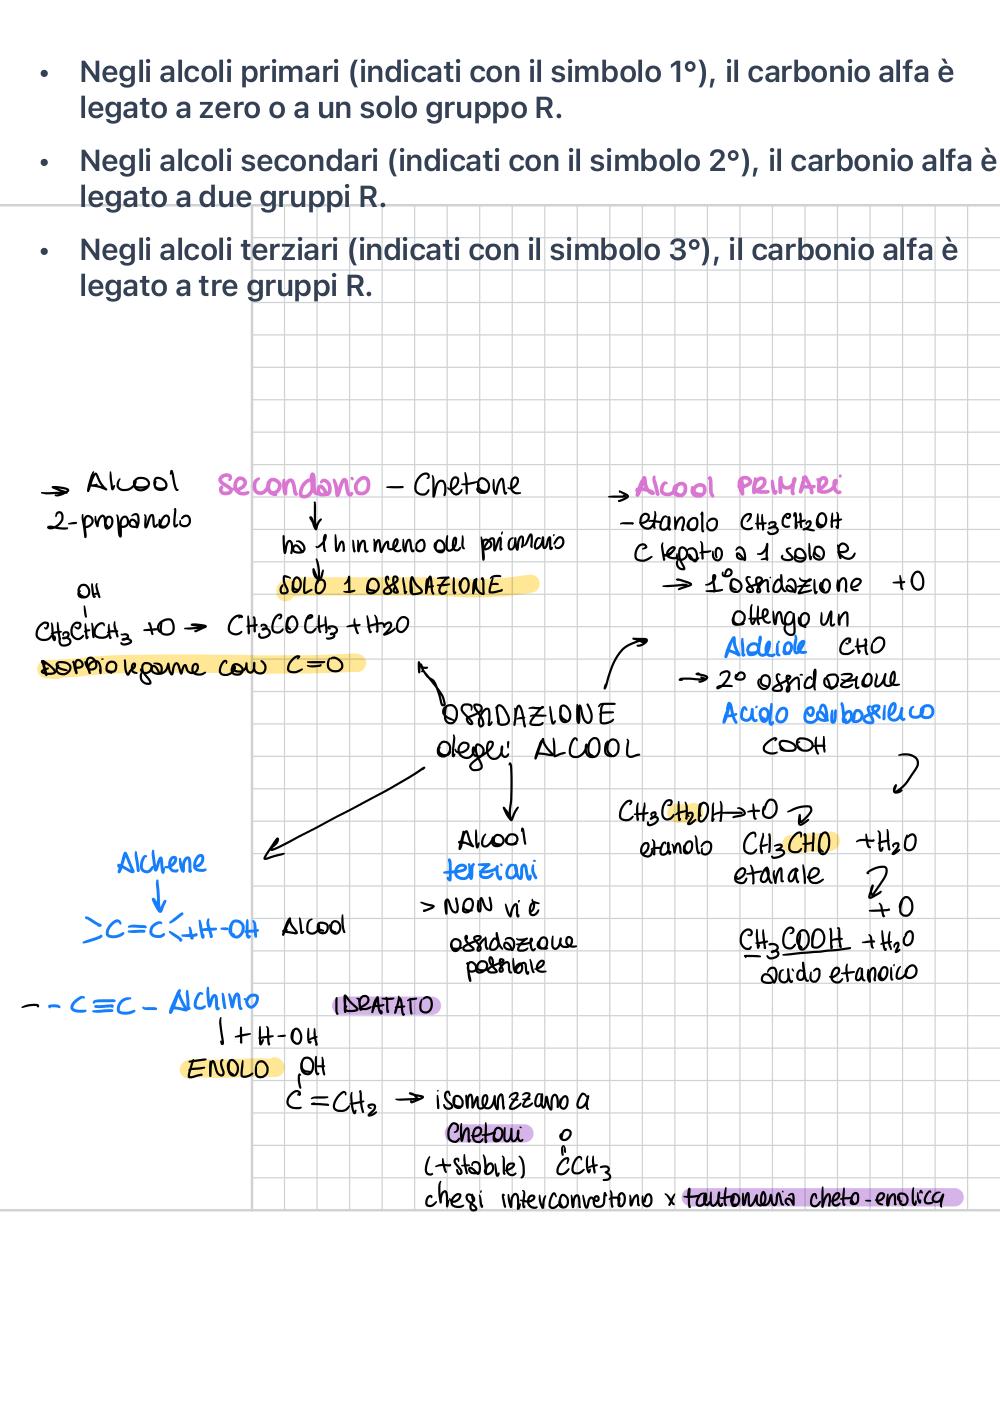 • Negli alcoli primari (indicati con il simbolo 1°), il carbonio alfa è
legato a zero o a un solo gruppo R.
• Negli alcoli secondari (indicati con il simbolo 2°), il carbonio alfa è
legato a due gruppi R.
• Negli alcoli terziari (indicati con il simbolo 3°), il carbonio alfa è
legato a tre gruppi R.
→ Alcool secondario - Chetone
2-propanolo
ha 1 h in meno del primario
SOLO 1 OSSIDAZIONE
OH
CH3CHCH3 +O → CH3COCH3 + H2O
DOPPIO legame con C=O
→ Alcool PRIMARi
- etanolo CH3CH2OH
C legato a 1 solo R
→ 1° ossidazione +O
ottengo un
Aldeide CHO
→ 2° ossidazione
Acido carbossilico
COOH
OSSIDAZIONE
degli ALCOOL
CH3CH2OH → +O
etanolo CH3CHO +H2O
etanale
+ O
CH3COOH +H2O
acido etanoico
Alcool
terziari
> NON vi è
ossidazione
possibile
Alchene
>C=C< +H-OH Alcool
-- C≡C - Alchino IDRATATO
↓ + H-OH
ENOLO OH
C =CH2 → isomerizzano a
Chetoni O
(+stabile) CCH3
che si interconvertono x tautomeria cheto-enolica